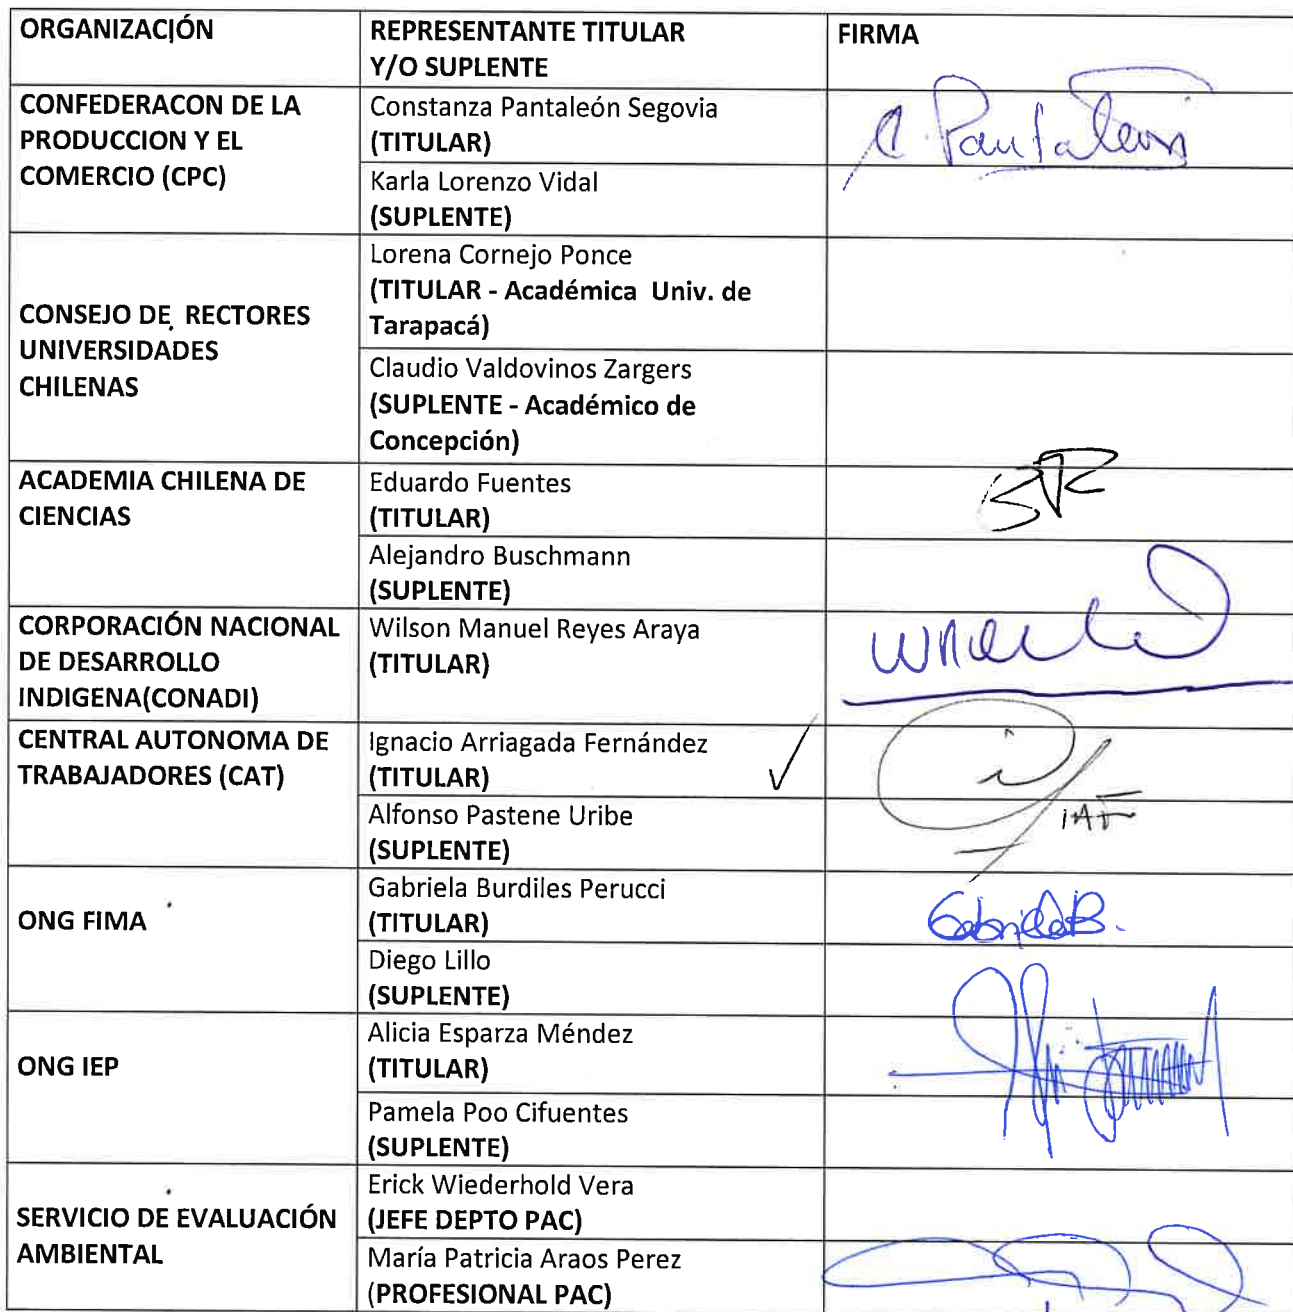 ORGANIZACIÓN
REPRESENTANTE TITULAR
Y/O SUPLENTE
FIRMA
CONFEDERACON DE LA
PRODUCCION Y EL
COMERCIO (CPC)
Constanza Pantaleón Segovia
(TITULAR)
C. Pantaleon
Karla Lorenzo Vidal
(SUPLENTE)
CONSEJO DE RECTORES
UNIVERSIDADES
CHILENAS
Lorena Cornejo Ponce
(TITULAR - Académica Univ. de
Tarapacá)
Claudio Valdovinos Zargers
(SUPLENTE - Académico de
Concepción)
ACADEMIA CHILENA DE
CIENCIAS
Eduardo Fuentes
(TITULAR)
Alejandro Buschmann
(SUPLENTE)
CORPORACIÓN NACIONAL
DE DESARROLLO
INDIGENA(CONADI)
Wilson Manuel Reyes Araya
(TITULAR)
CENTRAL AUTONOMA DE
TRABAJADORES (CAT)
Ignacio Arriagada Fernández
(TITULAR)
✓
IAF
Alfonso Pastene Uribe
(SUPLENTE)
ONG FIMA
Gabriela Burdiles Perucci
(TITULAR)
Gabriela B.
Diego Lillo
(SUPLENTE)
ONG IEP
Alicia Esparza Méndez
(TITULAR)
Pamela Poo Cifuentes
(SUPLENTE)
SERVICIO DE EVALUACIÓN
AMBIENTAL
Erick Wiederhold Vera
(JEFE DEPTO PAC)
María Patricia Araos Perez
(PROFESIONAL PAC)